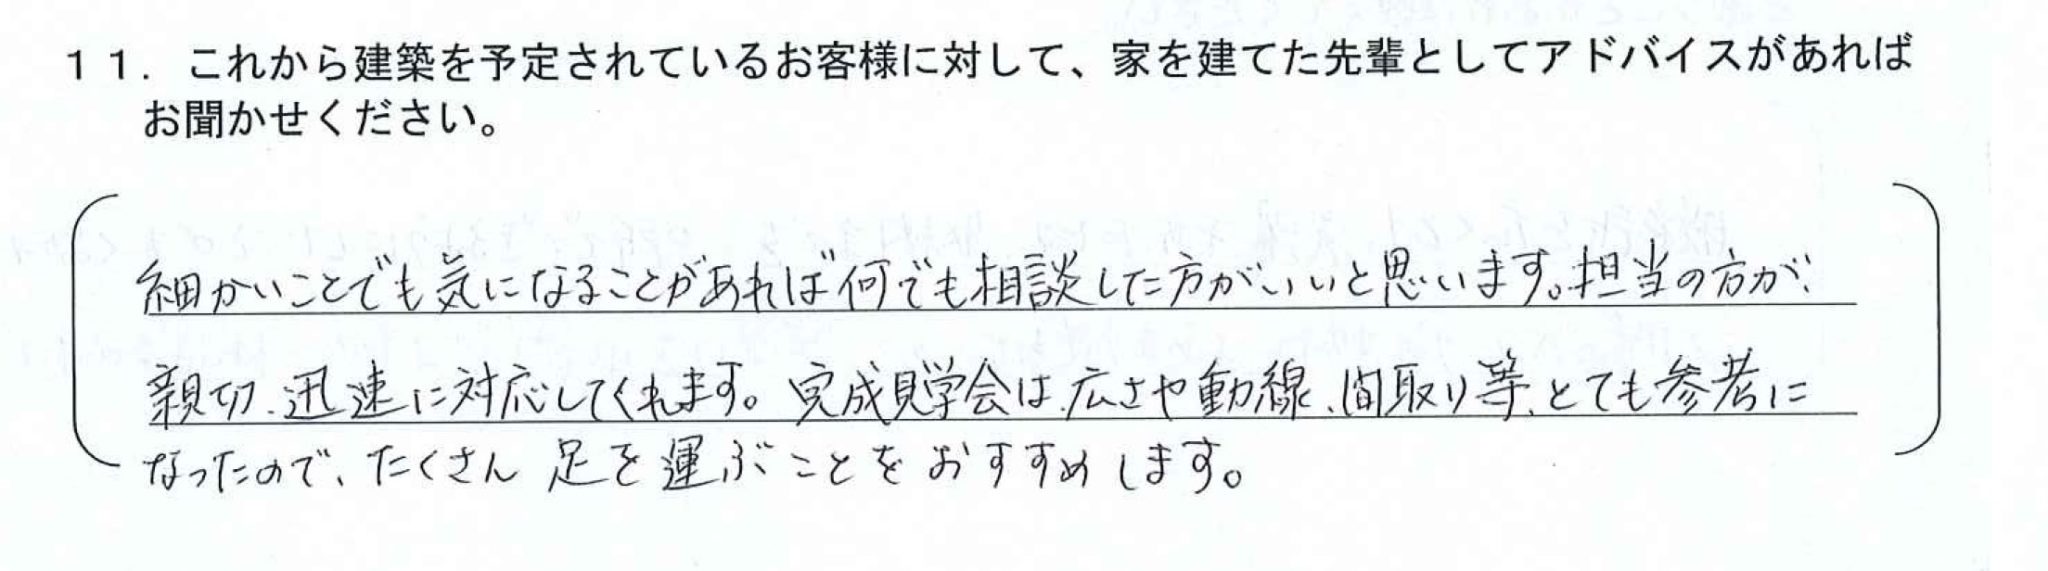 11．これから建築を予定されているお客様に対して、家を建てた先輩としてアドバイスがあれば
お聞かせください。
細かいことでも気になることがあれば何でも相談した方がいいと思います。担当の方が、
親切、迅速に対応してくれます。完成見学会は、広さや動線、間取り等、とても参考に
なったので、たくさん足を運ぶことをおすすめします。